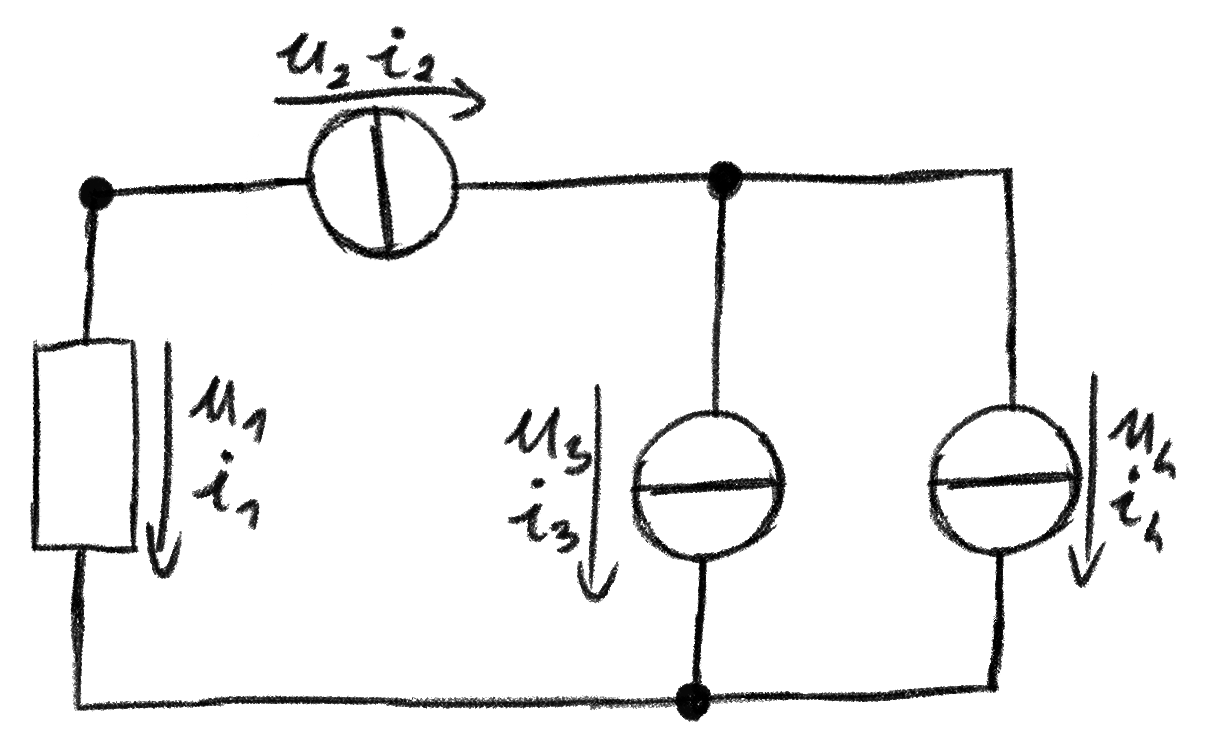 u₂ i₂
u₁
i₁
u₃
i₃
u₄
i₄